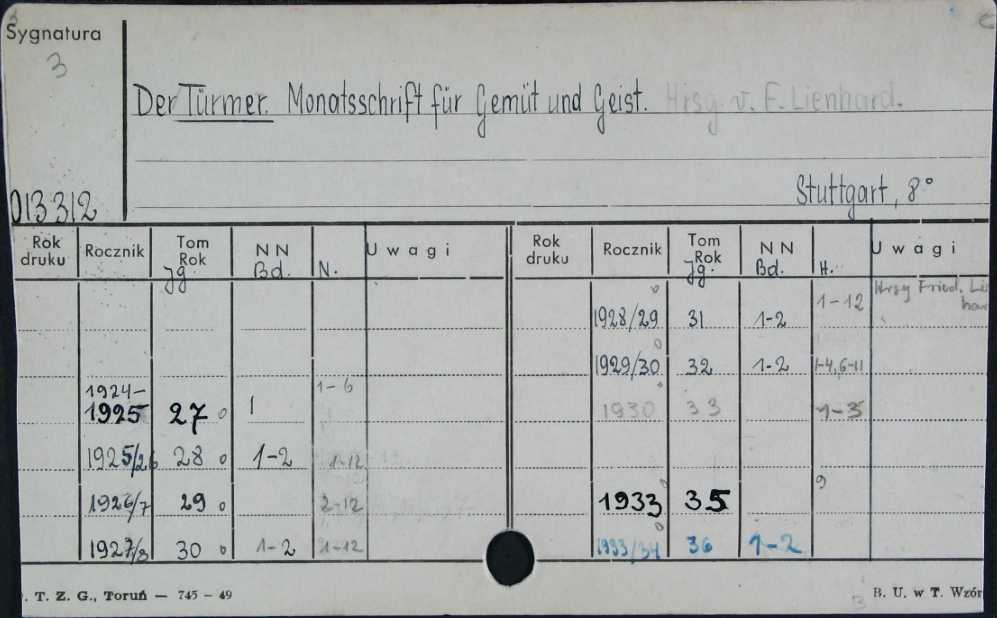 Sygnatura
3
Der Türmer. Monatsschrift für Gemüt und Geist. Hrsg. v. F. Lienhard.
013312
Stuttgart, 8°
Rok druku Rocznik Tom Rok Jg. NN Bd. N. Uwagi
1924-1925 27 1 1-6
1925/26 28 1-2 1-12
1926/7 29 2-12
1927/8 30 1-2 1-12
Rok druku Rocznik Tom Rok Jg. NN Bd. H. Uwagi
1928/29 31 1-2 1-12 Hrsg Fried. Lienhard
1929/30 32 1-2 1-4, 6-11
1930 33 1-3
1933 35 9
1933/34 36 1-2
. T. Z. G., Toruń — 745 - 49
B. U. w T. Wzór